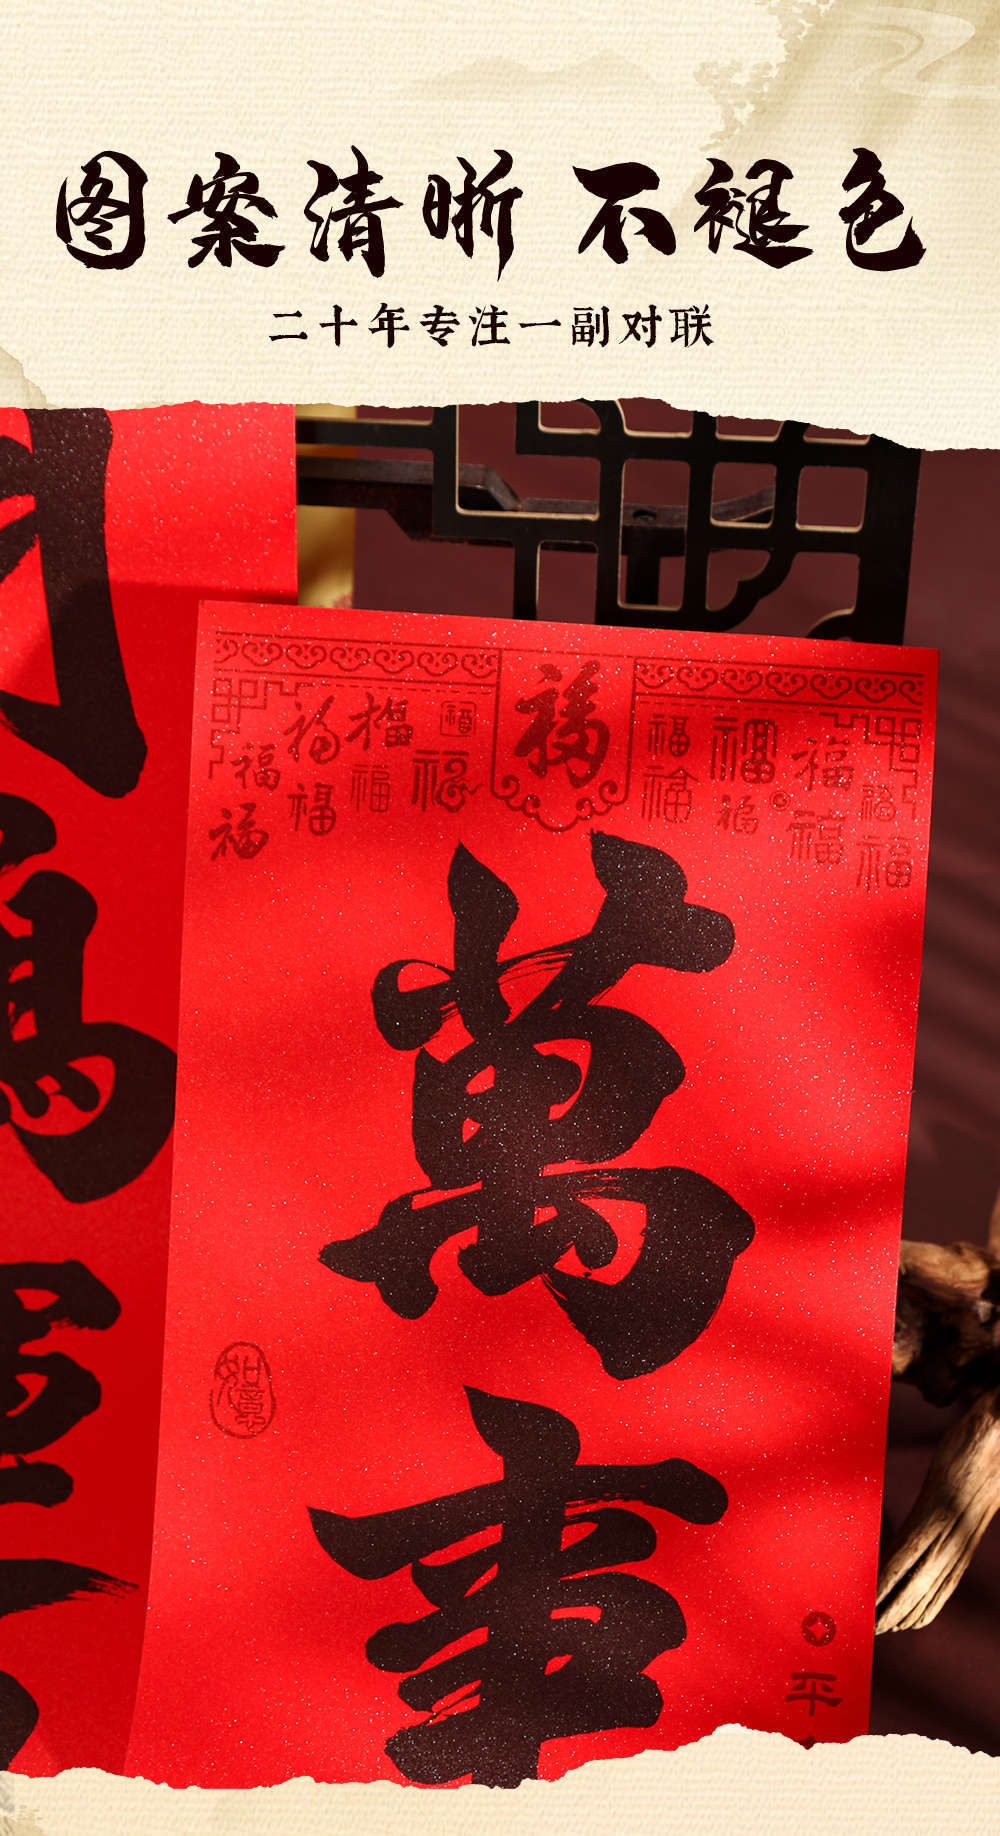 图案清晰 不褪色
二十年专注一副对联
福
福 福 福 福 福 福
福 福 福 福 福 福 福 福
萬
事
如意
平